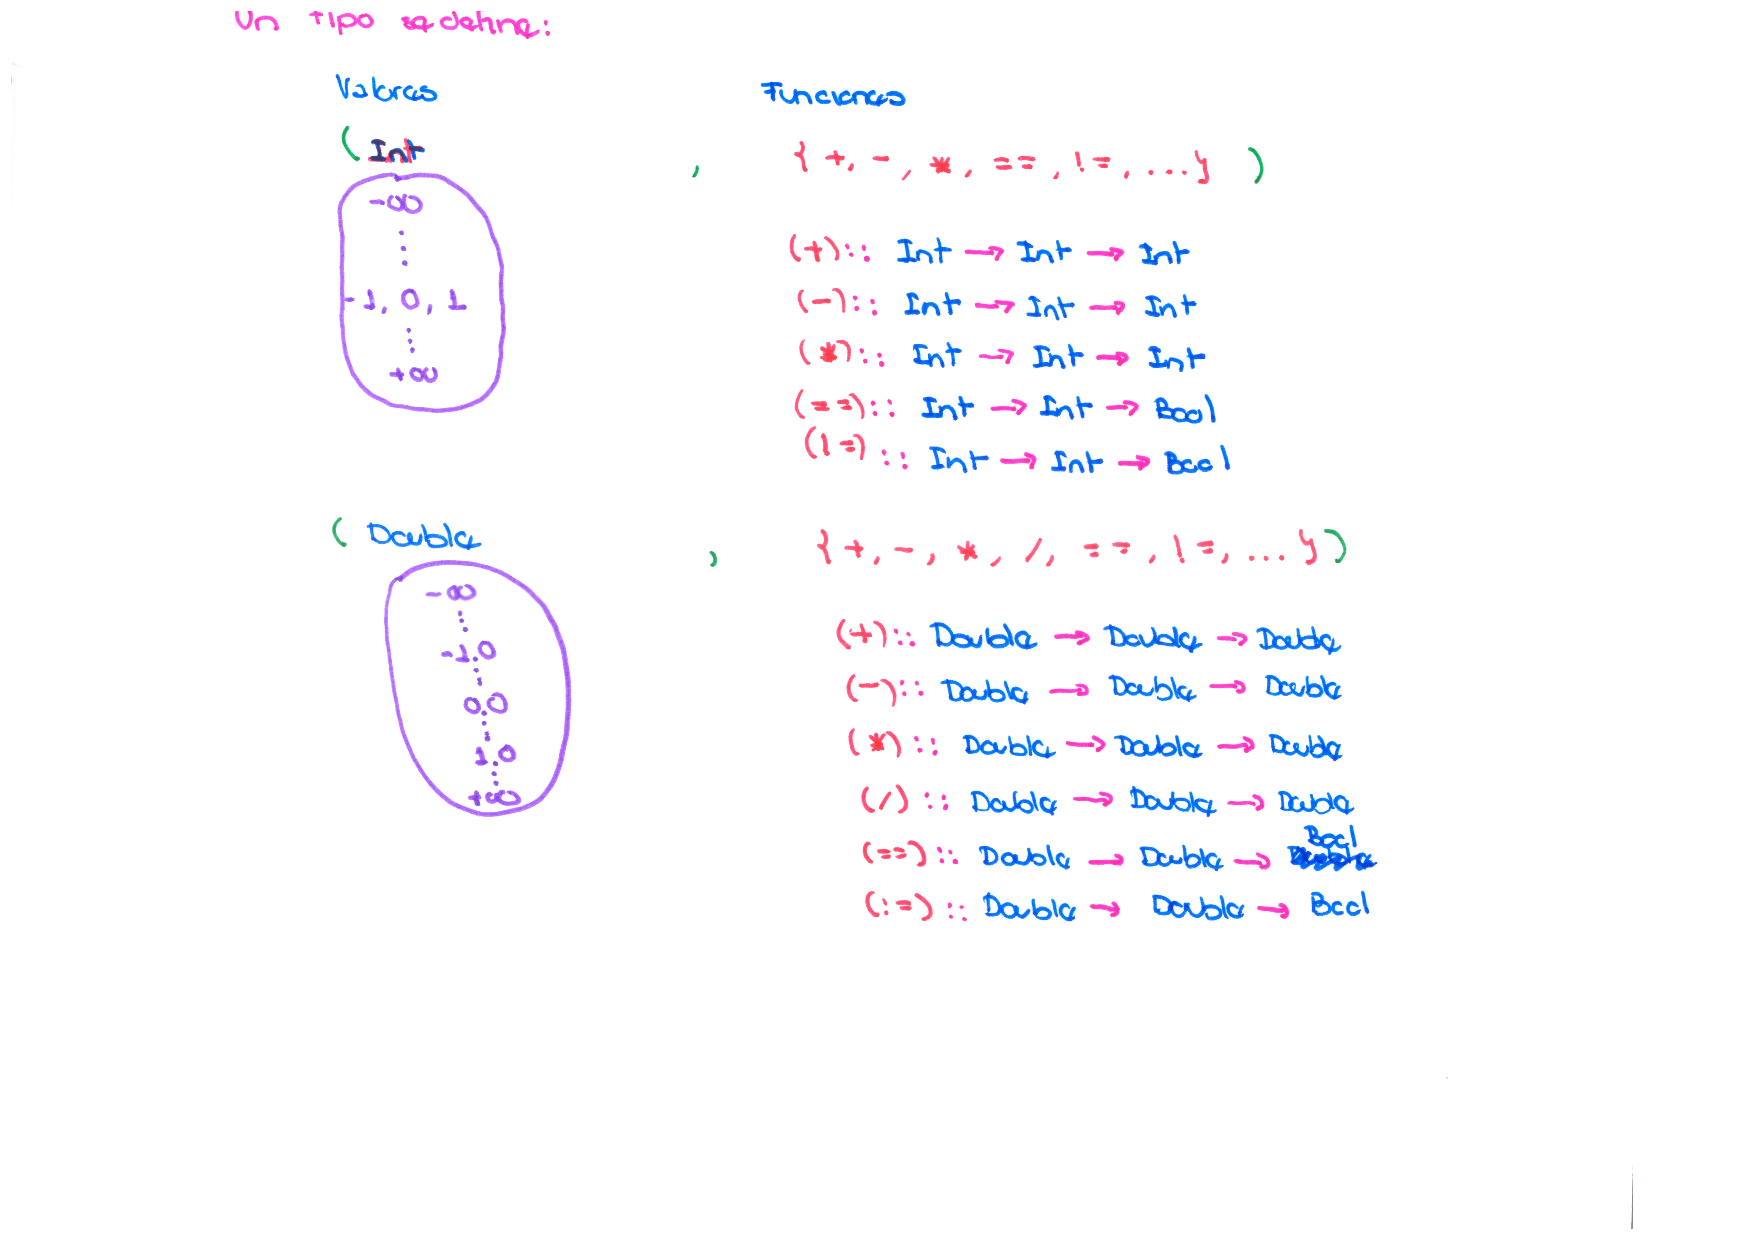 Un tipo se define:
Valores Funciones
( Int , { +, -, *, ==, !=, ... } )
-∞
-1, 0, 1
+∞
(+) :: Int → Int → Int
(-) :: Int → Int → Int
(*) :: Int → Int → Int
(==) :: Int → Int → Bool
(!=) :: Int → Int → Bool
( Double , { +, -, *, /, ==, !=, ... } )
-∞
-1.0
0.0
1.0
+∞
(+) :: Double → Double → Double
(-) :: Double → Double → Double
(*) :: Double → Double → Double
(/) :: Double → Double → Double
(==) :: Double → Double → Bool
(!=) :: Double → Double → Bool